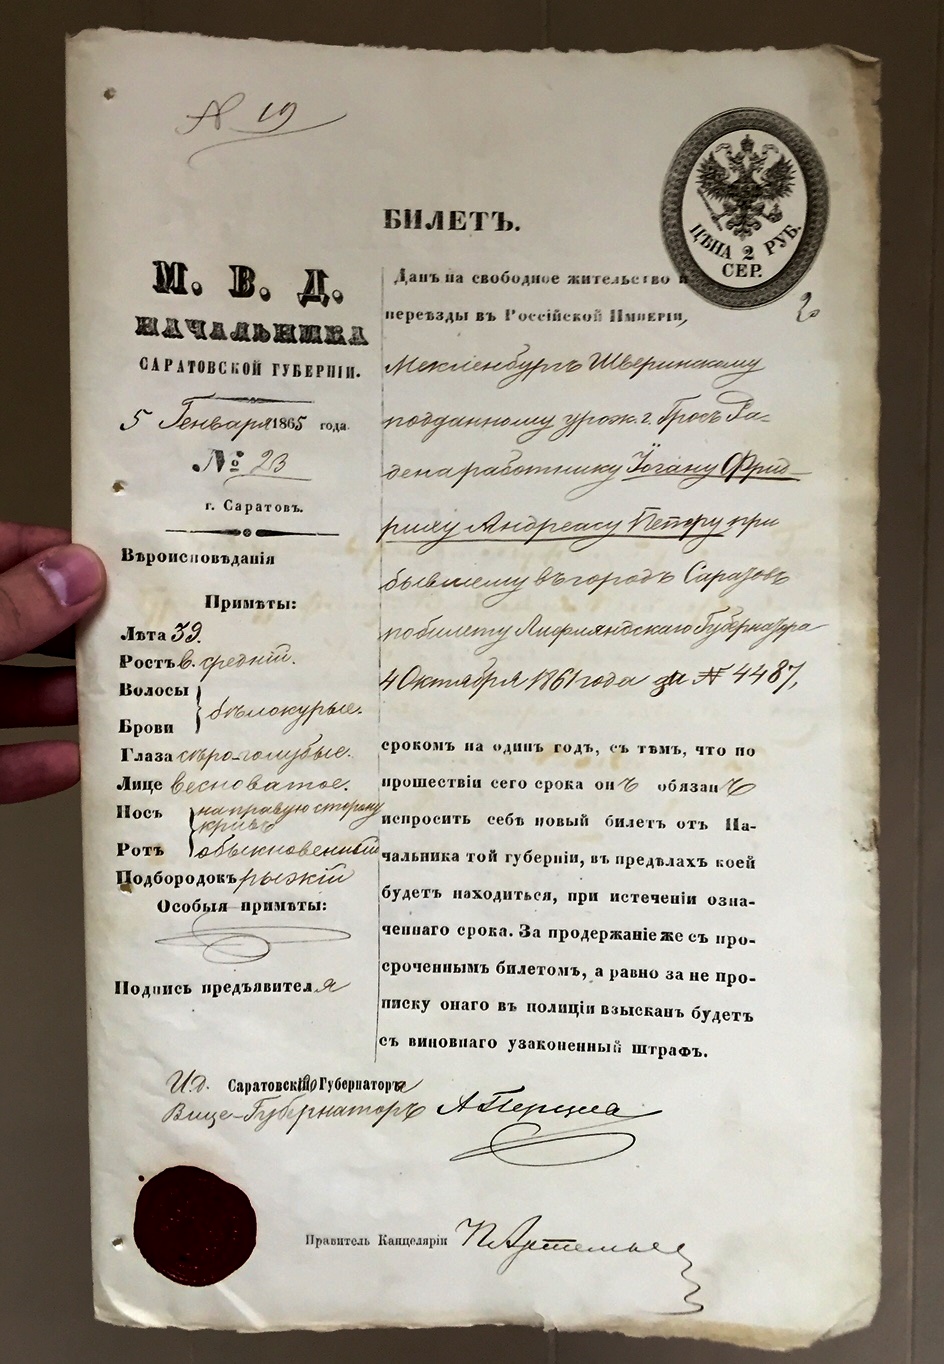 № 19
ЦѢНА 2 РУБ.
СЕР.
2
БИЛЕТЪ.
М. В. Д.
НАЧАЛЬНИКА
САРАТОВСКОЙ ГУБЕРНІИ.
5 Генваря 1865 года.
№ 23
г. Саратовъ.
Вѣроисповѣданія
Примѣты:
Лѣта 39.
Ростъ в. средній.
Волосы
Брови
бѣлокурые.
Глаза сѣро-голубые.
Лице весноватое.
Носъ на правую сторону
кривъ
Ротъ обыкновенный
Подбородокъ рыжій
Особыя примѣты:
Подпись предъявителя
Данъ на свободное жительство и
переѣзды въ Россійской Имперіи,
Мекленбургъ Шверинскому
подданному урож. г. Гросъ Ра-
дена работнику Іогану Фрид-
риху Андреасу Петеру при
бывшему въ городъ Саратовъ
по билету Лифляндскаго Губернатора
4 Октября 1861 года за № 4487,
срокомъ на одинъ годъ, съ тѣмъ, что по
прошествіи сего срока онъ обязанъ
испросить себѣ новый билетъ отъ На-
чальника той губерніи, въ предѣлахъ коей
будетъ находиться, при истеченіи озна-
ченнаго срока. За продержаніе же съ про-
сроченнымъ билетомъ, а равно за не про-
писку онаго въ полиціи взысканъ будетъ
съ виновнаго узаконенный штрафъ.
И.д. Саратовскаго Губернатора
Вице-Губернаторъ
Правитель Канцеляріи